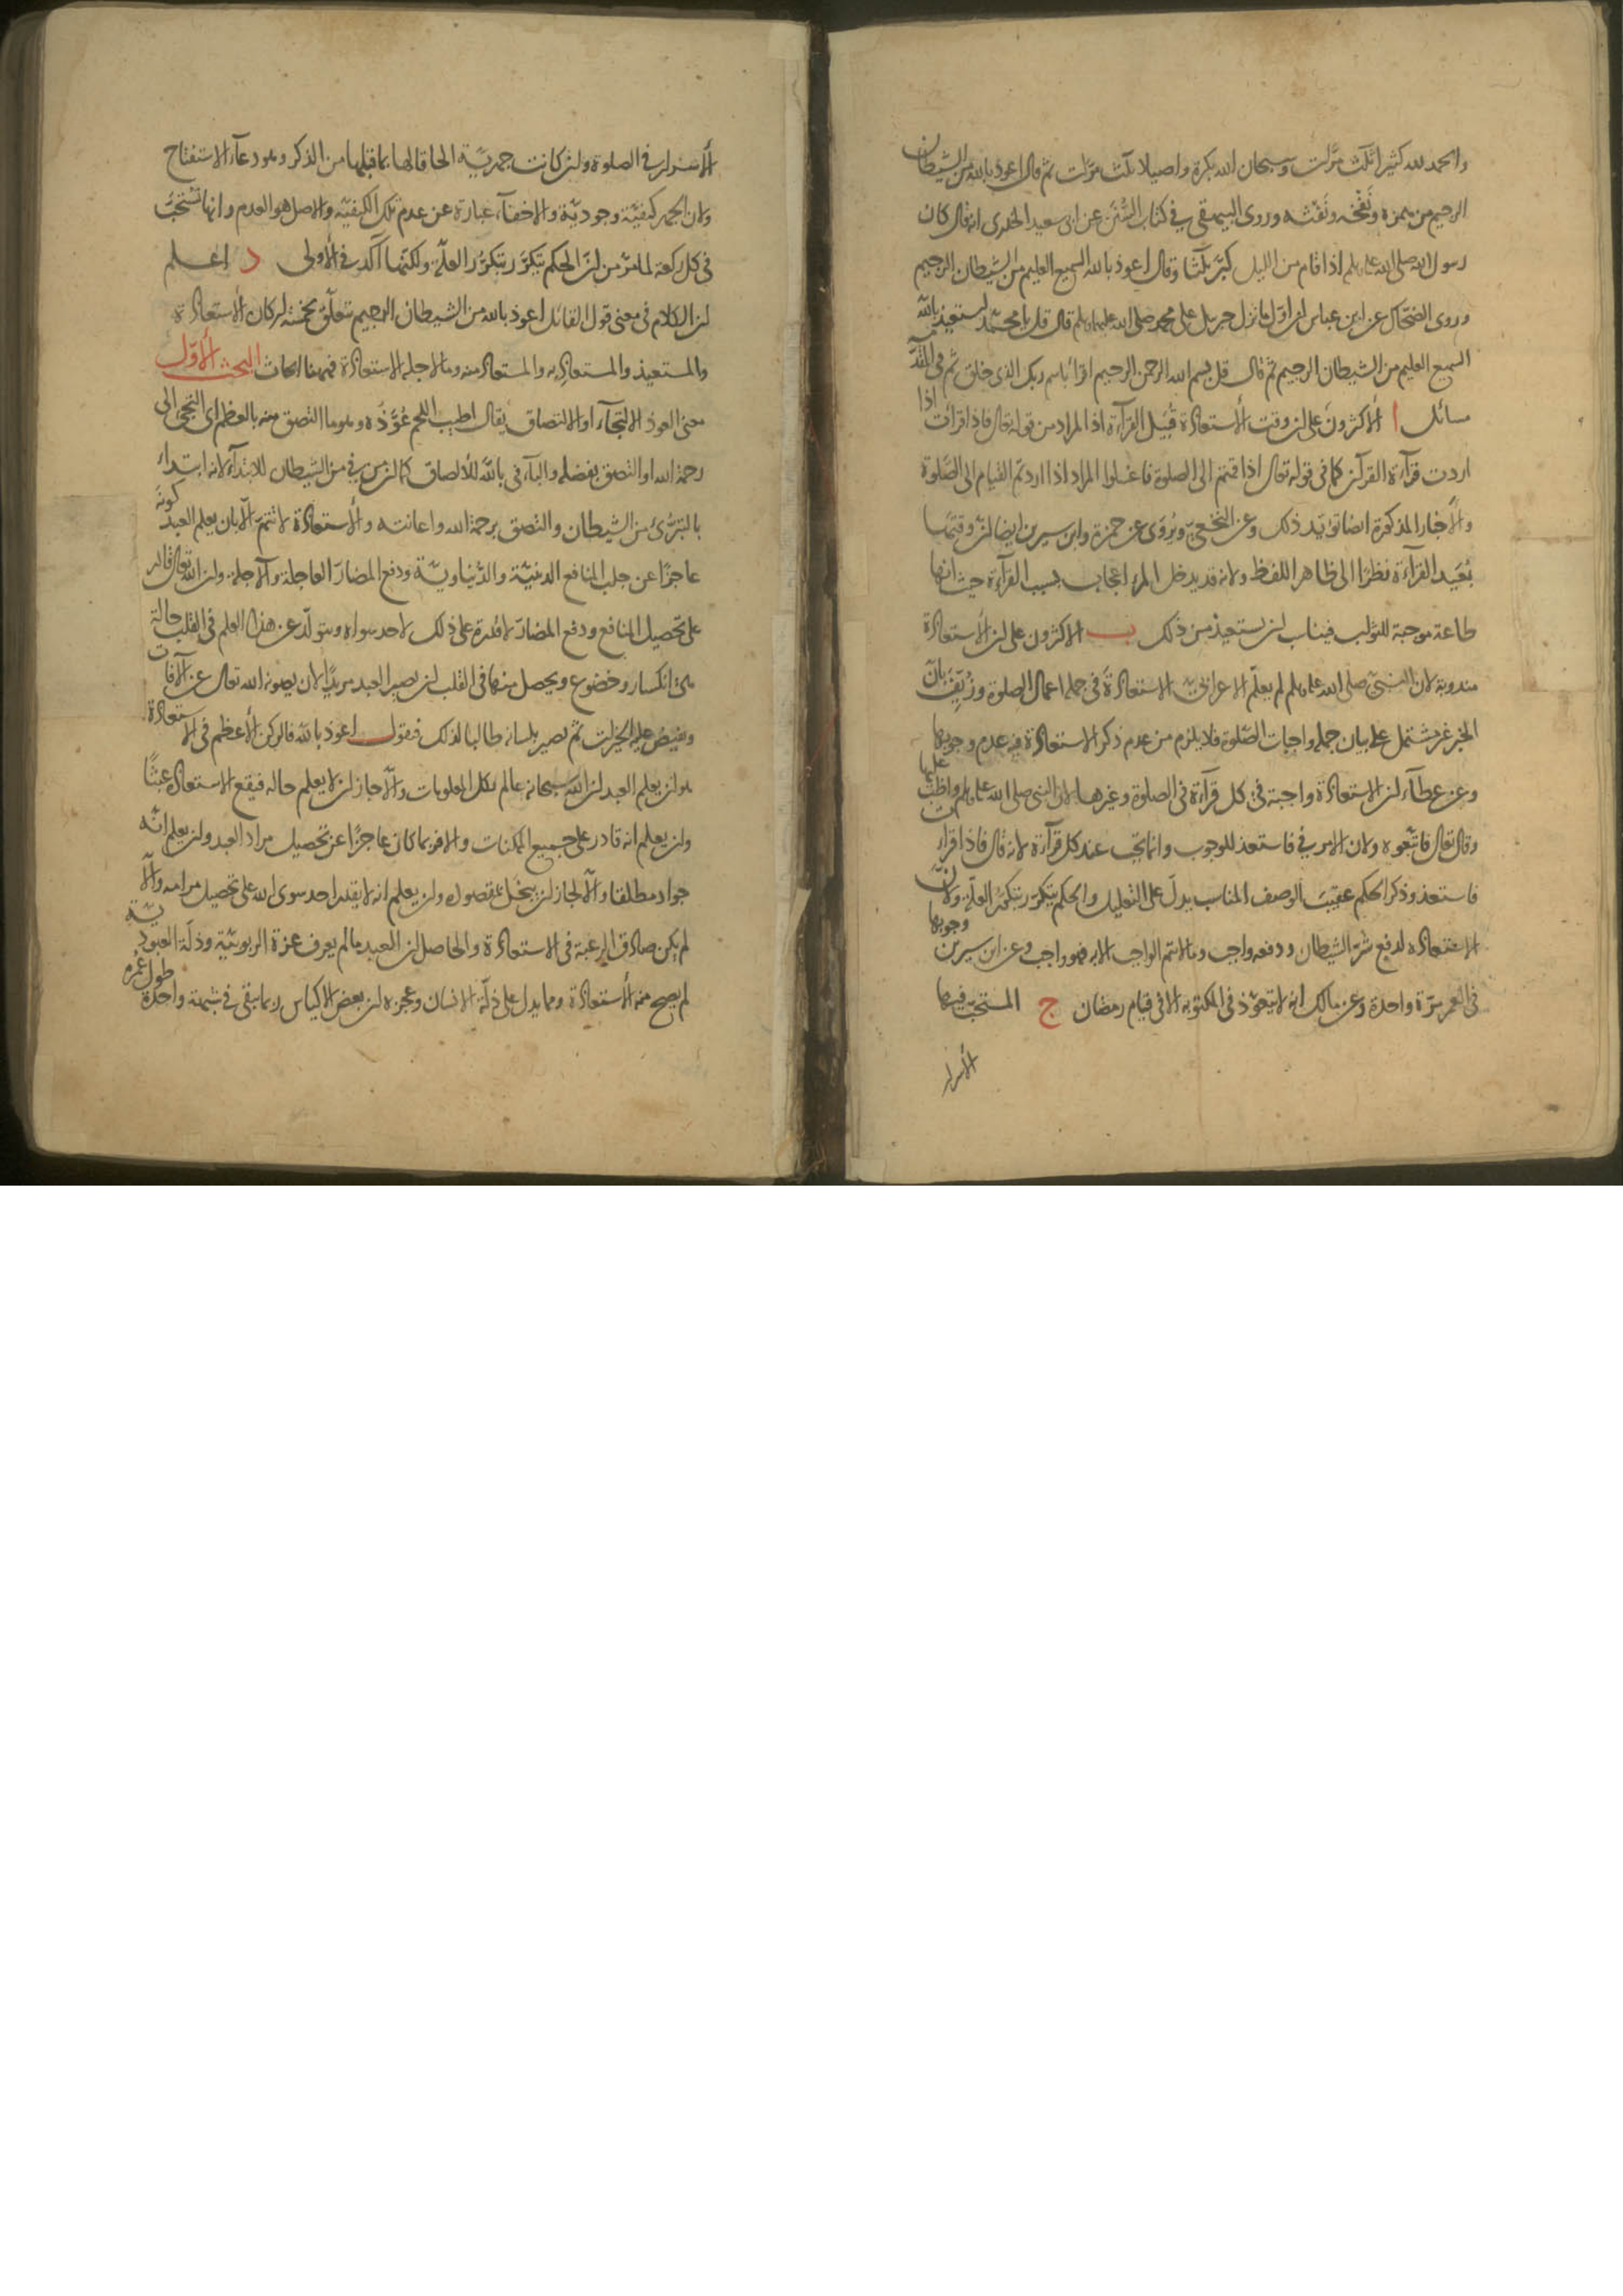 والحمد لله كثيرا ثلث مرات وسبحان الله بكرة واصيلا ثلث مرات ثم قال اعوذ بالله من الشيطان
الرجيم من همزه ونفخه ونفثه وروى البيهقي في كتاب السنن عن ابي سعيد الخدري انه قال كان
رسول الله صلى الله عليه وسلم اذا قام من الليل كبر ثلثا وقال اعوذ بالله السميع العليم من الشيطان الرجيم
وروى الضحاك عن ابن عباس ان اول ما نزل جبريل على محمد صلى الله عليهما وسلم قال قل يا محمد استعيذ بالله
السميع العليم من الشيطان الرجيم ثم قال قل بسم الله الرحمن الرحيم اقرأ باسم ربك الذي خلق ثم في
مسائل ا الأكثرون على ان وقت الأستعاذة قبيل القرآءة اذ المراد من قوله تعالى فاذا قرأت اذا
اردت قرآءة القرآن كما في قوله تعالى اذا قمتم الى الصلوة فاغسلوا المراد اذا اردتم القيام الى الصلوة
والأخبار المذكورة ايضا تؤيد ذلك وعن النخعي ويروى عن حمزة وابن سيرين ايضا ان وقتها
بعيد القرآءة نظرا الى ظاهر اللفظ ولانه قد يدخل المرء اعجاب بسبب القرآءة حيث انها
طاعة موجبة للثواب فيناسب ان يستعيذ من ذلك ب الاكثرون على ان الأستعاذة
مندوبة لان النبي صلى الله عليه وسلم لم يعلم الاعرابي الاستعاذة في جملة اعمال الصلوة وزيف بان
الخبر غير مشتمل على بيان جملة واجبات الصلوة فلا يلزم من عدم ذكر الاستعاذة فيه عدم وجوبها
وعن عطآء ان الاستعاذة واجبة في كل قرآءة في الصلوة وغيرها لان النبي صلى الله عليه وسلم واظب عليها
وقال تعالى فاتبعوه ولان الامر في فاستعذ للوجوب وانما تجب عند كل قرآءة لانه قال فاذا قرأت
فاستعذ وذكر الحكم عقيب الوصف المناسب يدل على التعليل والحكم يتكرر بتكرر العلة ولان
الاستعاذة لدفع شر الشيطان ودفعه واجب وما لا يتم الواجب الا به فهو واجب وعن ابن سيرين وجوبها
في العمر مرة واحدة وعن مالك انه لا يتعوذ في المكتوبة الا في قيام رمضان ج المستحب فيها
الأسرار
الأسرار في الصلوة وان كانت جهرية الحاقا لها بما قبلها من الذكر وهو دعآء الاستفتاح
ولان الجهر كيفية وجودية والاخفآء عبارة عن عدم تلك الكيفية والاصل هو العدم وانها تستحب
في كل ركعة لما مر من ان الحكم يتكرر بتكرر العلة ولكنها آكد في الاولى د اعلم
ان الكلام في معنى قول القائل اعوذ بالله من الشيطان الرجيم يتعلق بخمسة اركان الأستعاذة
والمستعيذ والمستعاذ به والمستعاذ منه وما لاجله الاستعاذة فههنا ابحاث البحث الأول
معنى العوذ الالتجآء او الالتصاق يقال اطيب اللحم عوذه وهو ما التصق منه بالعظم اي التجئ الى
رحمة الله او التصق بفضله والبآء في بالله للألصاق كما ان من في من الشيطان للابتدآء لانه ابتداء
بالتبرئ من الشيطان والتصق برحمة الله واعانته والأستعاذة لا تتم الا بان يعلم العبد كونه
عاجزا عن جلب المنافع الدينية والدنياوية ودفع المضار العاجلة والآجلة وان الله تعالى قادر
على تحصيل المنافع ودفع المضار لا قدرة على ذلك لاحد سواه ويتولد عن هذا العلم في القلب حالة
هي انكسار وخضوع ويحصل منها في القلب ان يصير العبد مريدا لان يصونه الله تعالى عن الآفات
ويفيض عليه الخيرات ثم يصير بلسانه طالبا لذلك فيقول اعوذ بالله فالركن الأعظم في الاستعاذة
هو ان يعلم العبد ان الله سبحانه عالم بكل المعلومات والا جاز ان لا يعلم حاله فيقع الاستعاذة عبثا
وان يعلم انه قادر على جميع الممكنات والا فربما كان عاجزا عن تحصيل مراد العبد وان يعلم انه
جواد مطلقا والا لجاز ان يبخل بمقصوده وان يعلم انه لا يقدر احد سوى الله على تحصيل مرامه والا
لم يكن صادق الرغبة في الاستعاذة والحاصل ان العبد ما لم يعرف عزة الربوبية وذلة العبودية
لم يصح منه الأستعاذة ومما يدل على ذلة الانسان وعجزه ان بعض الاكياس ربما بقي في شبهة واحدة طول عمره